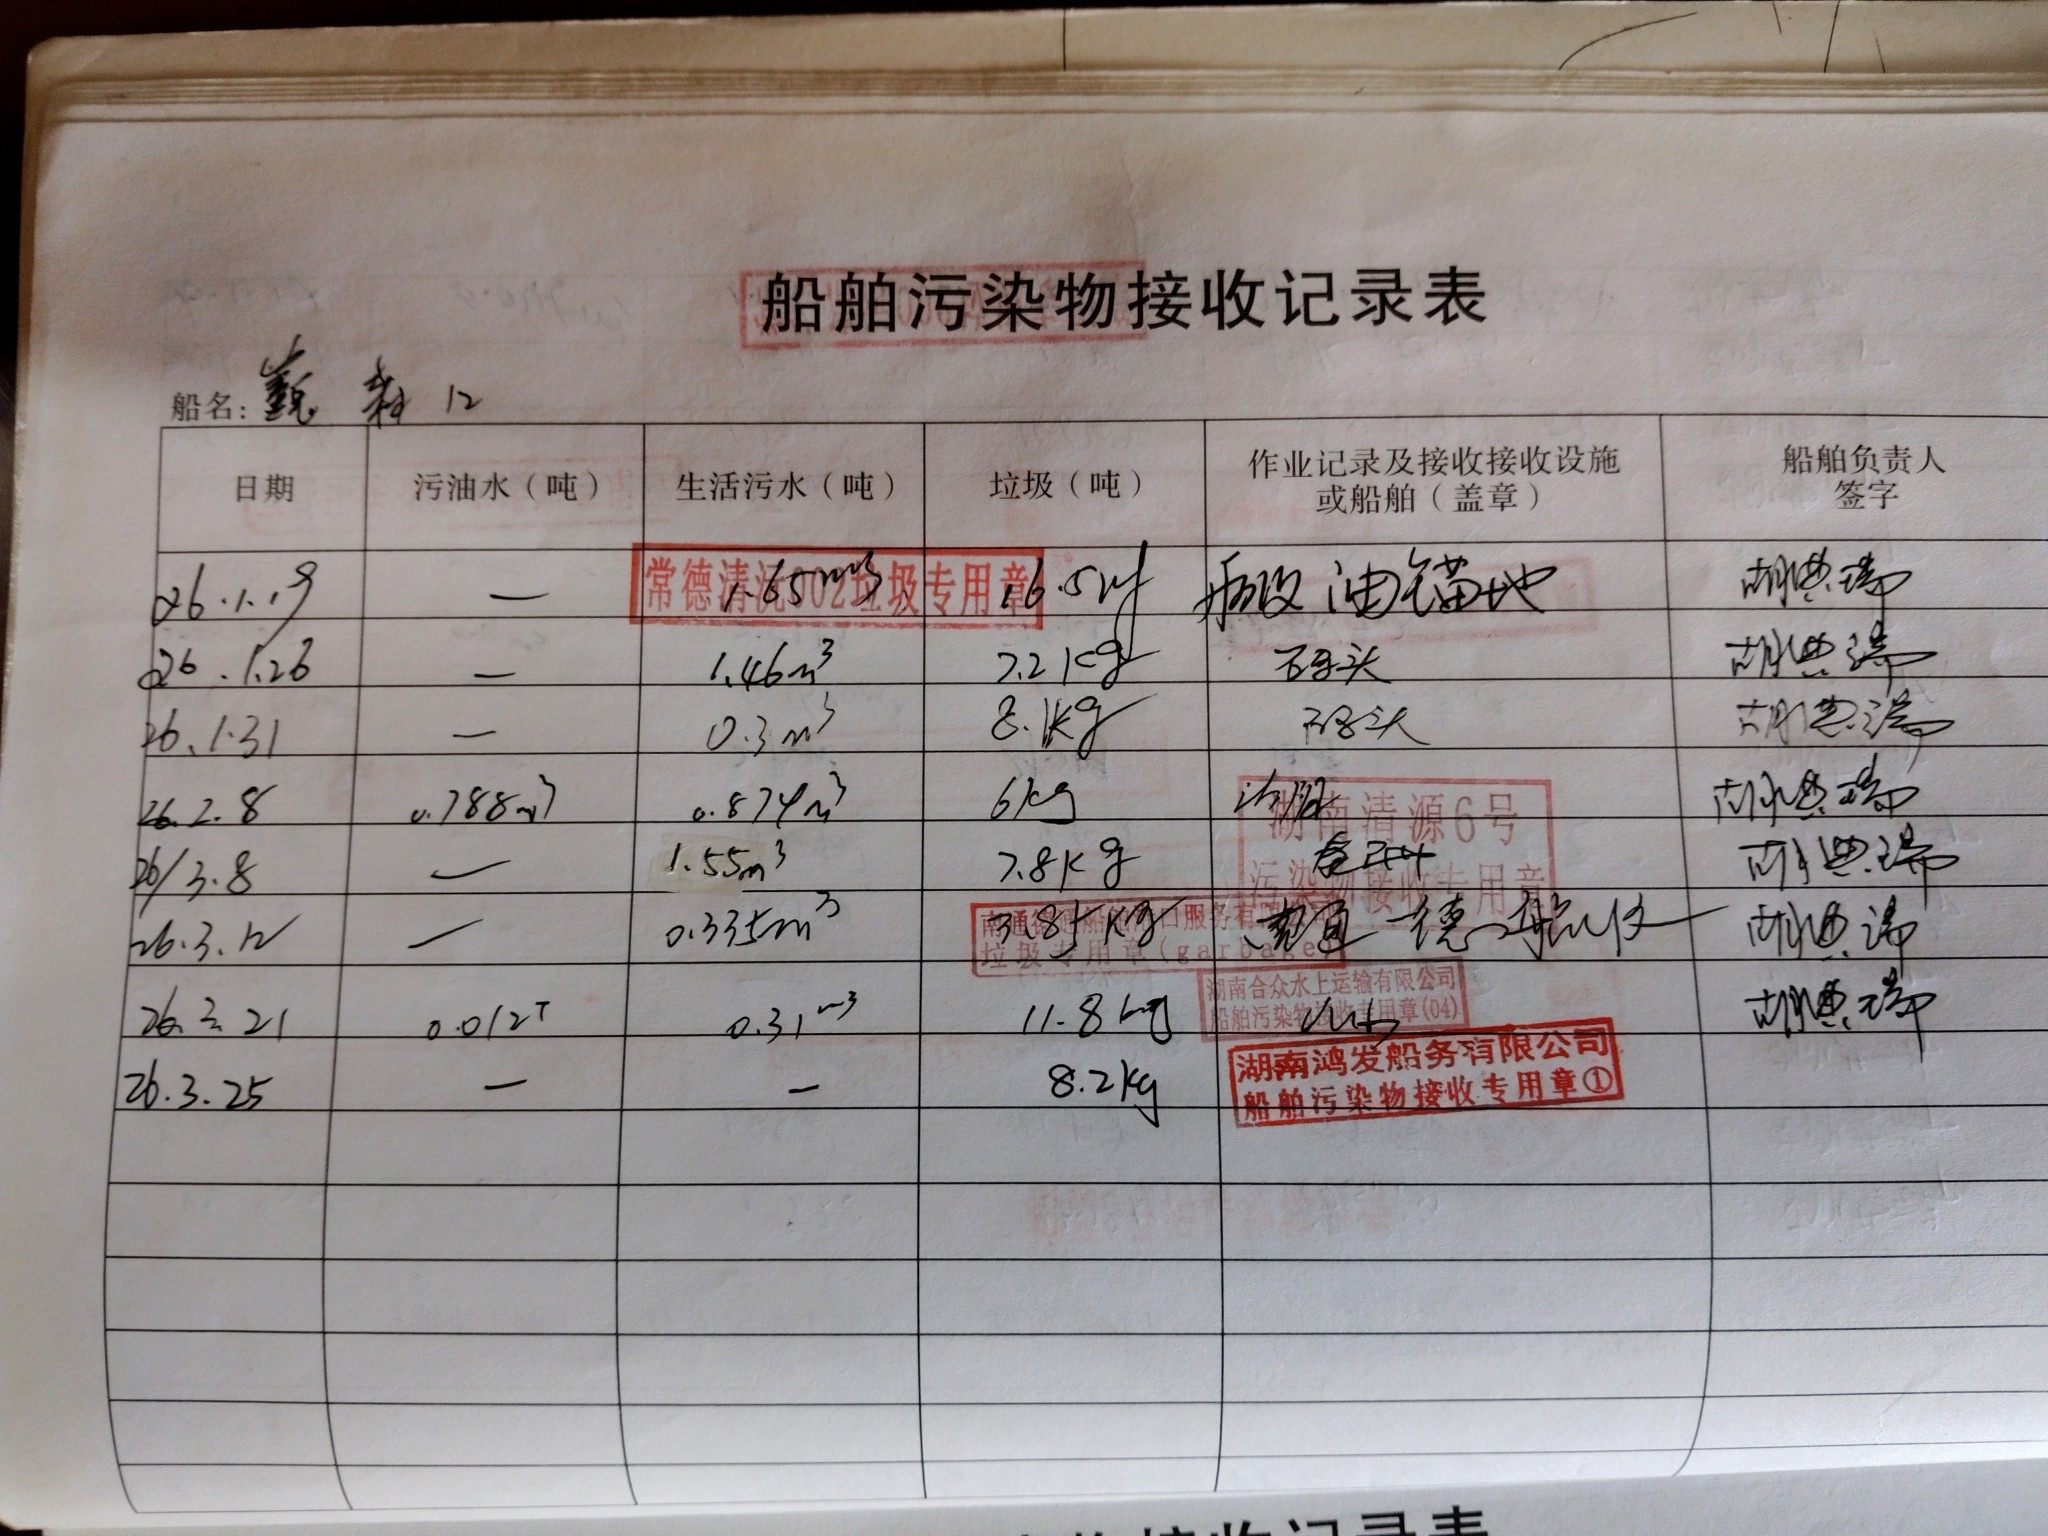 船舶污染物接收记录表
船名: 12
日期 污油水（吨） 生活污水（吨） 垃圾（吨） 作业记录及接收接收设施或船舶（盖章） 船舶负责人签字
26.1.19 — 1.65m³ 16.5 油锚地 胡典瑞
常德清流002垃圾专用章
26.1.26 — 1.46m³ 7.2kg 码头 胡典瑞
26.1.31 — 0.3m³ 8.1kg 码头 胡典瑞
26.2.8 0.788m³ 0.874m³ 6kg 胡典瑞
湖南清源6号
污染物接收专用章
26/3.8 — 1.55m³ 7.8kg 胡典瑞
26.3.12 — 0.335m³ 3.85kg 南通 德 胡典瑞
垃圾专用章(garbage)
26.3.21 0.012T 0.31m³ 11.8kg 胡典瑞
湖南合众水上运输有限公司
船舶污染物接收专用章(04)
26.3.25 — — 8.2kg
湖南鸿发船务有限公司
船舶污染物接收专用章①
接收记录表